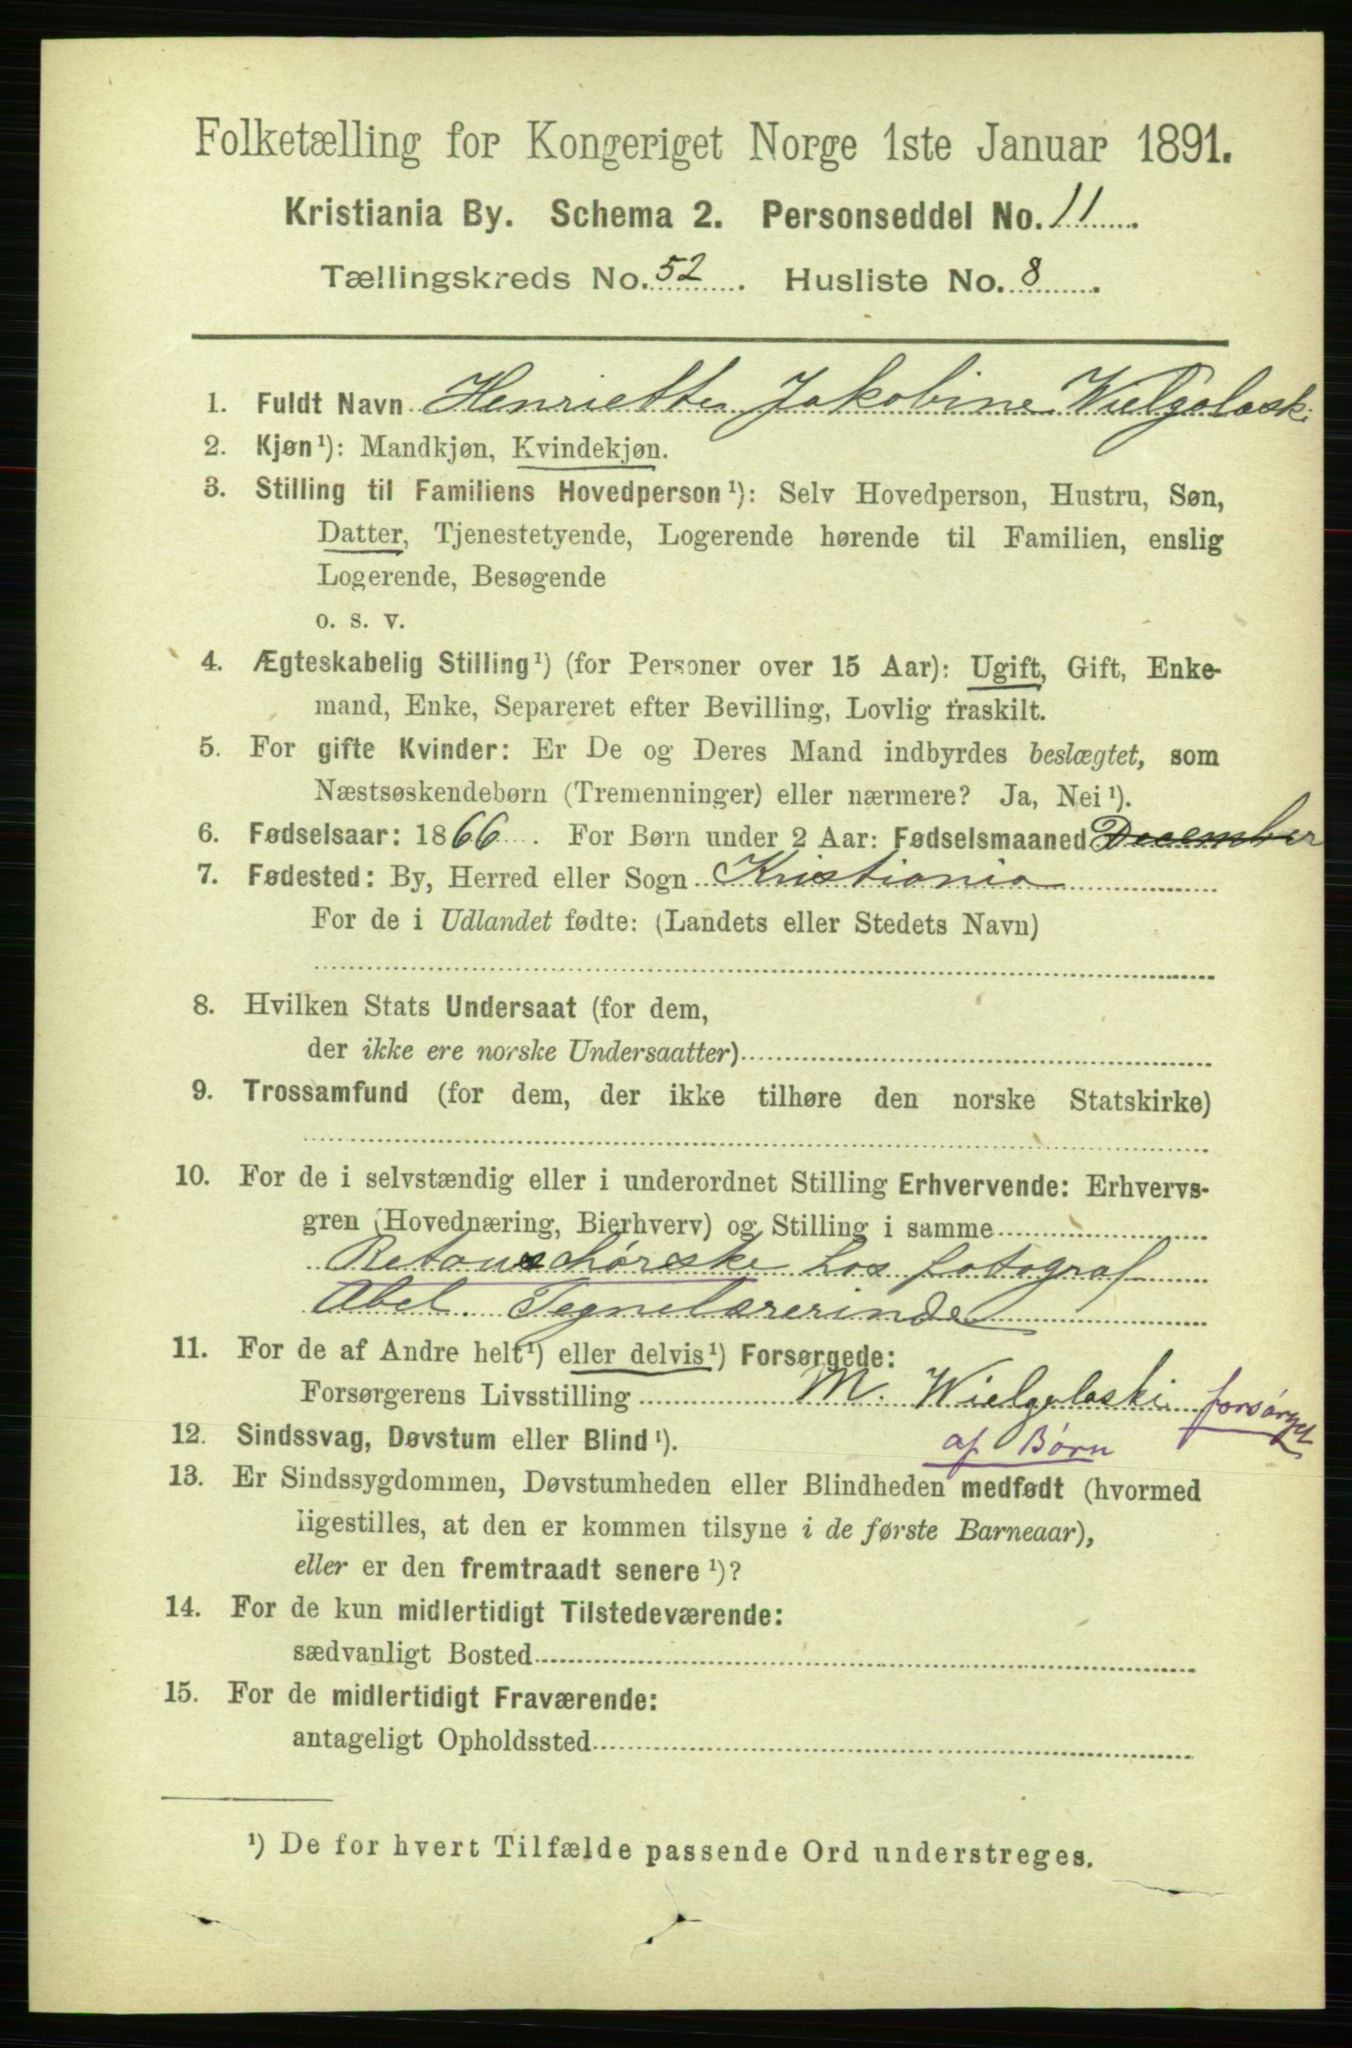 Folketælling for Kongeriget Norge 1ste Januar 1891.
Kristiania By. Schema 2. Personseddel No. 11
Tællingskreds No. 52. Husliste No. 8.
1. Fuldt Navn Henriette Jakobine Wielgolaski
2. Kjøn¹): Mandkjøn, Kvindekjøn.
3. Stilling til Familiens Hovedperson¹): Selv Hovedperson, Hustru, Søn,
Datter, Tjenestetyende, Logerende hørende til Familien, enslig
Logerende, Besøgende
o. s. v.
4. Ægteskabelig Stilling¹) (for Personer over 15 Aar): Ugift, Gift, Enke-
mand, Enke, Separeret efter Bevilling, Lovlig fraskilt.
5. For gifte Kvinder: Er De og Deres Mand indbyrdes beslægtet, som
Næstsøskendebørn (Tremenninger) eller nærmere? Ja, Nei¹).
6. Fødselsaar: 1866. For Børn under 2 Aar: Fødselsmaaned December
7. Fødested: By, Herred eller Sogn Kristiania
For de i Udlandet fødte: (Landets eller Stedets Navn)
8. Hvilken Stats Undersaat (for dem,
der ikke ere norske Undersaatter)
9. Trossamfund (for dem, der ikke tilhøre den norske Statskirke)
10. For de i selvstændig eller i underordnet Stilling Erhvervende: Erhvervs-
gren (Hovednæring, Bierhverv) og Stilling i samme
Retouschørske hos fotograf
Abel. Tegnelærerinde
11. For de af Andre helt¹) eller delvis¹) Forsørgede:
Forsørgerens Livsstilling M. Wielgolaski forsørget
12. Sindssvag, Døvstum eller Blind¹). af Børn
13. Er Sindssygdommen, Døvstumheden eller Blindheden medfødt (hvormed
ligestilles, at den er kommen tilsyne i de første Barneaar),
eller er den fremtraadt senere¹)?
14. For de kun midlertidigt Tilstedeværende:
sædvanligt Bosted
15. For de midlertidigt Fraværende:
antageligt Opholdssted
¹) De for hvert Tilfælde passende Ord understreges.